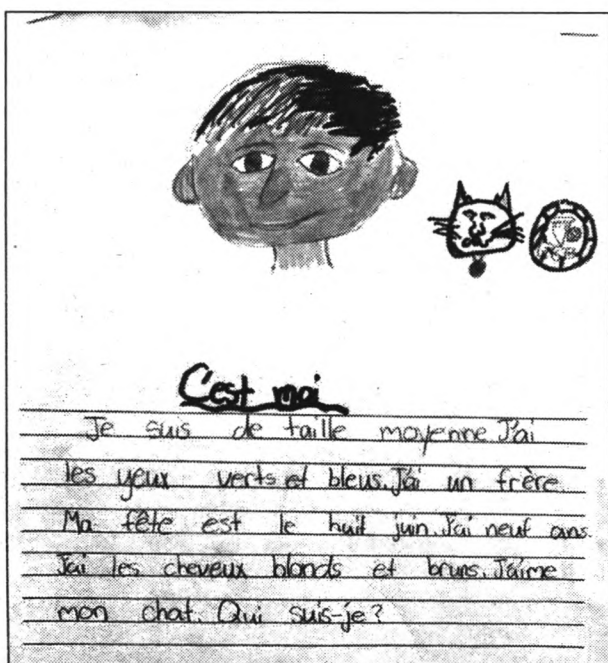 C'est moi
Je suis de taille moyenne. J'ai
les yeux verts et bleus. J'ai un frère.
Ma fête est le huit juin. J'ai neuf ans.
J'ai les cheveux blonds et bruns. J'aime
mon chat. Qui suis-je?